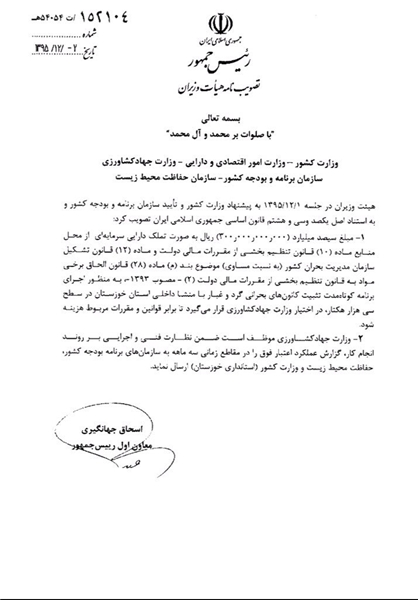 ۱۵۲۱۰۴/ت۵۴۰۵۴هـ
شماره
۱۳۹۵/۱۲/۰۲
تاریخ
جمهوری اسلامی ایران
رئیس جمهور
تصویب نامه هیأت وزیران
بسمه تعالی
"با صلوات بر محمد و آل محمد"
وزارت کشور – وزارت امور اقتصادی و دارایی – وزارت جهادکشاورزی
سازمان برنامه و بودجه کشور – سازمان حفاظت محیط زیست
هیئت وزیران در جلسه ۱۳۹۵/۱۲/۱ به پیشنهاد وزارت کشور و تأیید سازمان برنامه و بودجه کشور و
به استناد اصل یکصد وسی و هشتم قانون اساسی جمهوری اسلامی ایران تصویب کرد:
۱- مبلغ سیصد میلیارد (۳۰۰٫۰۰۰٫۰۰۰٫۰۰۰) ریال به صورت تملک دارایی سرمایه‌ای از محل
منابع ماده (۱۰) قانون تنظیم بخشی از مقررات مالی دولت و ماده (۱۲) قانون تشکیل
سازمان مدیریت بحران کشور (به نسبت مساوی) موضوع بند (م) ماده (۲۸) قانون الحاق برخی
مواد به قانون تنظیم بخشی از مقررات مالی دولت (۲) - مصوب ۱۳۹۳- به منظور اجرای
برنامه کوتاه‌مدت تثبیت کانون‌های بحرانی گرد و غبار با منشا داخلی استان خوزستان در سطح
سی هزار هکتار، در اختیار وزارت جهادکشاورزی قرار می‌گیرد تا برابر قوانین و مقررات مربوط هزینه
شود.
۲- وزارت جهادکشاورزی موظف است ضمن نظارت فنی و اجرایی بر روند
انجام کار، گزارش عملکرد اعتبار فوق را در مقاطع زمانی سه ماهه به سازمان‌های برنامه بودجه کشور،
حفاظت محیط زیست و وزارت کشور (استانداری خوزستان) ارسال نماید.
اسحاق جهانگیری
معاون اول رییس‌جمهور